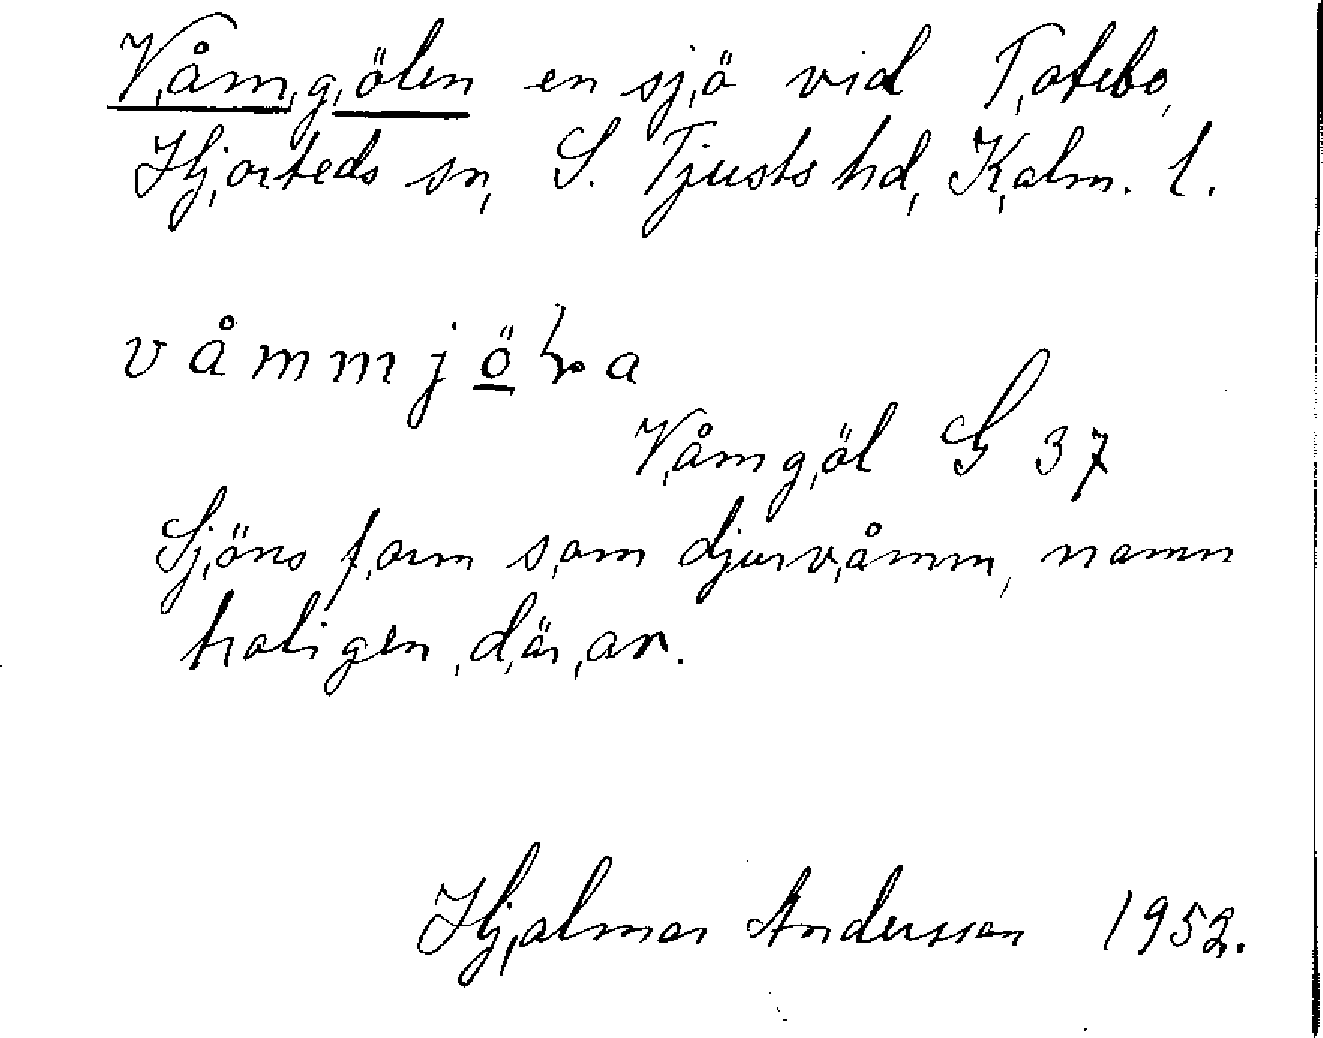 Våmgölen en sjö vid Totebo,
Hjorteds sn, S. Tjusts hd, Kalm. l.
våmmjö a
Våmgöl G 37
Sjöns form som djurvåmm, namn
troligen därav.
Hjalmar Andersson 1952.